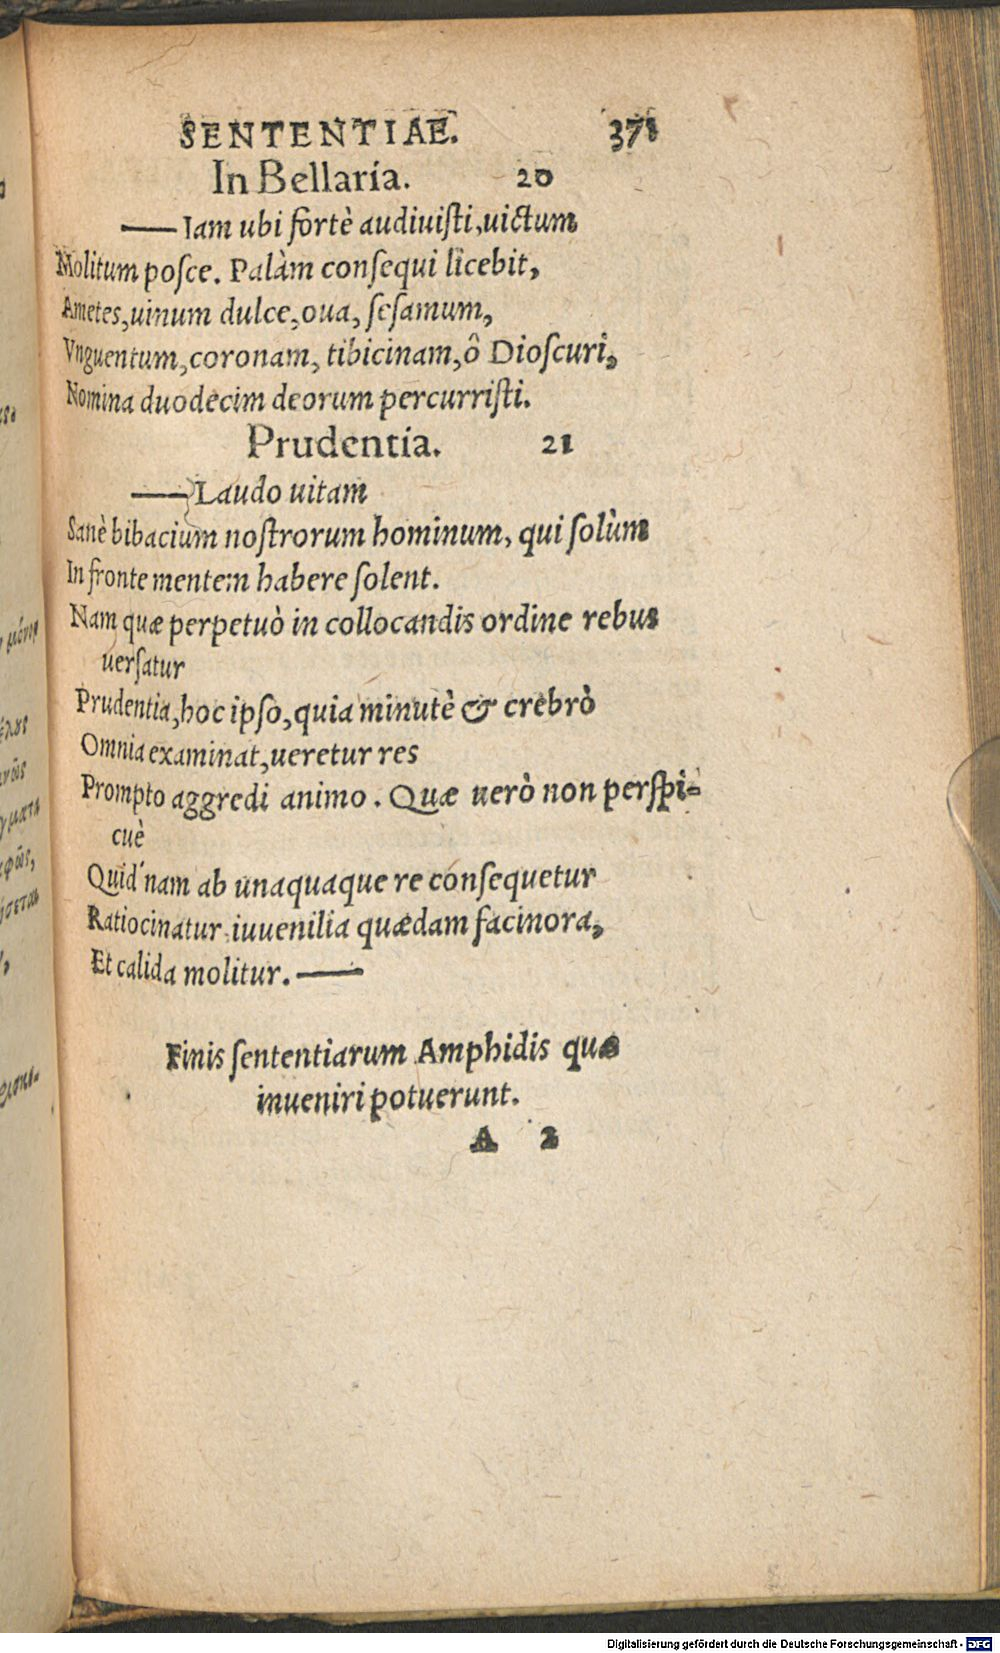 SENTENTIAE. 371
In Bellaria. 20
—— Iam ubi fortè audiuisti, uictum
Molitum posce. Palàm consequi licebit,
Ametes, uinum dulce, oua, sesamum,
Vnguentum, coronam, tibicinam, ô Dioscuri,
Nomina duodecim deorum percurristi.
Prudentia. 21
—— Laudo uitam
Sanè bibacium nostrorum hominum, qui solùm
In fronte mentem habere solent.
Nam quæ perpetuò in collocandis ordine rebus
uersatur
Prudentia, hoc ipso, quia minutè & crebrò
Omnia examinat, ueretur res
Prompto aggredi animo. Quæ uerò non perspi-
cuè
Quid'nam ab unaquaque re consequetur
Ratiocinatur, iuuenilia quædam facinora,
Et calida molitur. ——
Finis sententiarum Amphidis quæ
inueniri potuerunt.
A 2
Digitalisierung gefördert durch die Deutsche Forschungsgemeinschaft - DFG